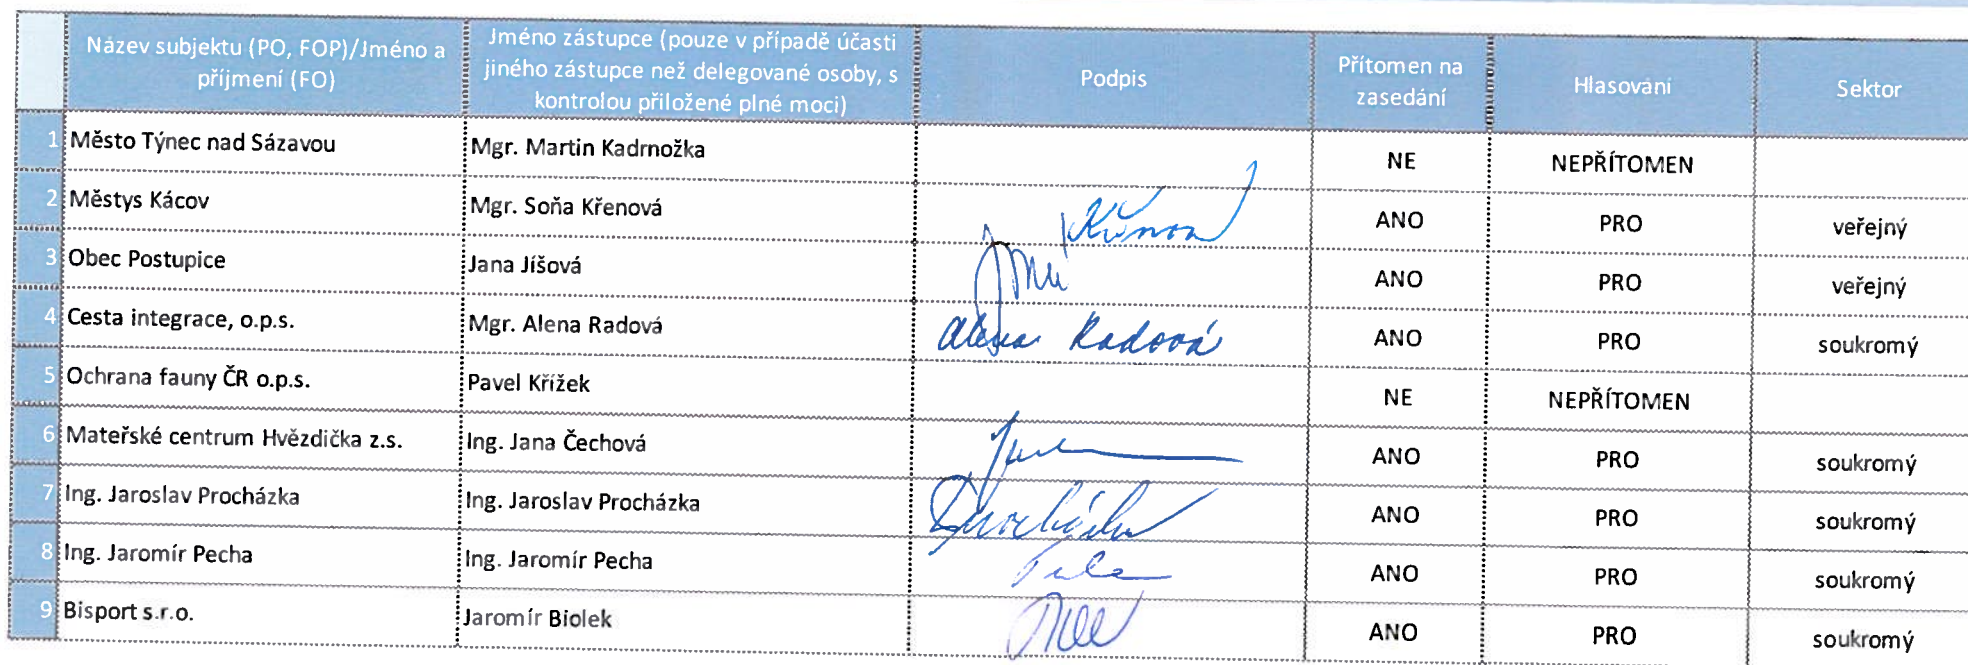 Název subjektu (PO, FOP)/Jméno a příjmení (FO) Jméno zástupce (pouze v případě účasti jiného zástupce než delegované osoby, s kontrolou přiložené plné moci) Podpis Přítomen na zasedání Hlasování Sektor
1 Město Týnec nad Sázavou Mgr. Martin Kadrnožka NE NEPŘÍTOMEN
2 Městys Kácov Mgr. Soňa Křenová ANO PRO veřejný
3 Obec Postupice Jana Jíšová ANO PRO veřejný
4 Cesta integrace, o.p.s. Mgr. Alena Radová Alena Radová ANO PRO soukromý
5 Ochrana fauny ČR o.p.s. Pavel Křížek NE NEPŘÍTOMEN
6 Mateřské centrum Hvězdička z.s. Ing. Jana Čechová ANO PRO soukromý
7 Ing. Jaroslav Procházka Ing. Jaroslav Procházka ANO PRO soukromý
8 Ing. Jaromír Pecha Ing. Jaromír Pecha ANO PRO soukromý
9 Bisport s.r.o. Jaromír Biolek ANO PRO soukromý